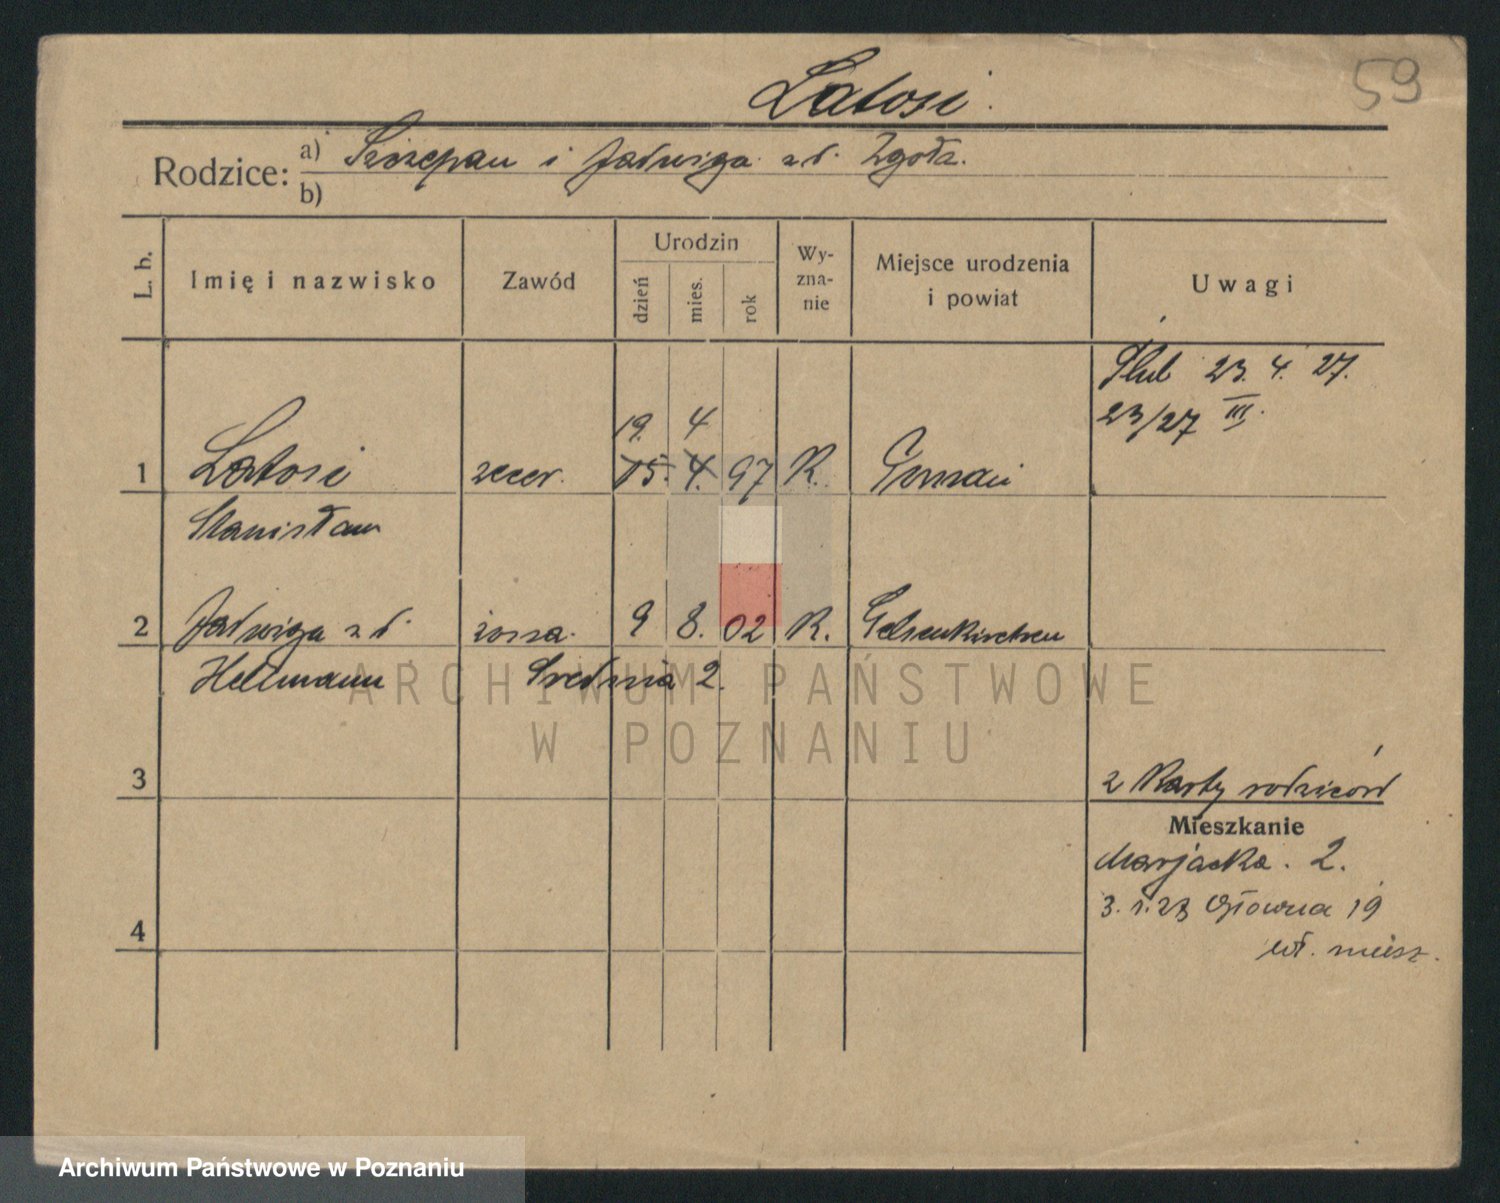 Latosi.
59
Rodzice: a) Szczepan i Jadwiga z d. Zgoła.
b)
L. b.
Imię i nazwisko
Zawód
Urodzin
dzień
mies.
rok
Wy-
zna-
nie
Miejsce urodzenia
i powiat
Uwagi
Ślub 23. 4. 27.
23/27 III.
19. 4
1 Latosi zecer. 15. 4. 97 R. Poznań
Stanisław
2 Jadwiga z d. żona. 9 8. 02 R. Gelsenkirchen
Hellmann Średnia 2.
ARCHIWUM PAŃSTWOWE
W POZNANIU
3
z Karty rodziców
Mieszkanie
Marjacka. 2.
3. 1. 28 Główna 19
4
wł. miesz.
Archiwum Państwowe w Poznaniu